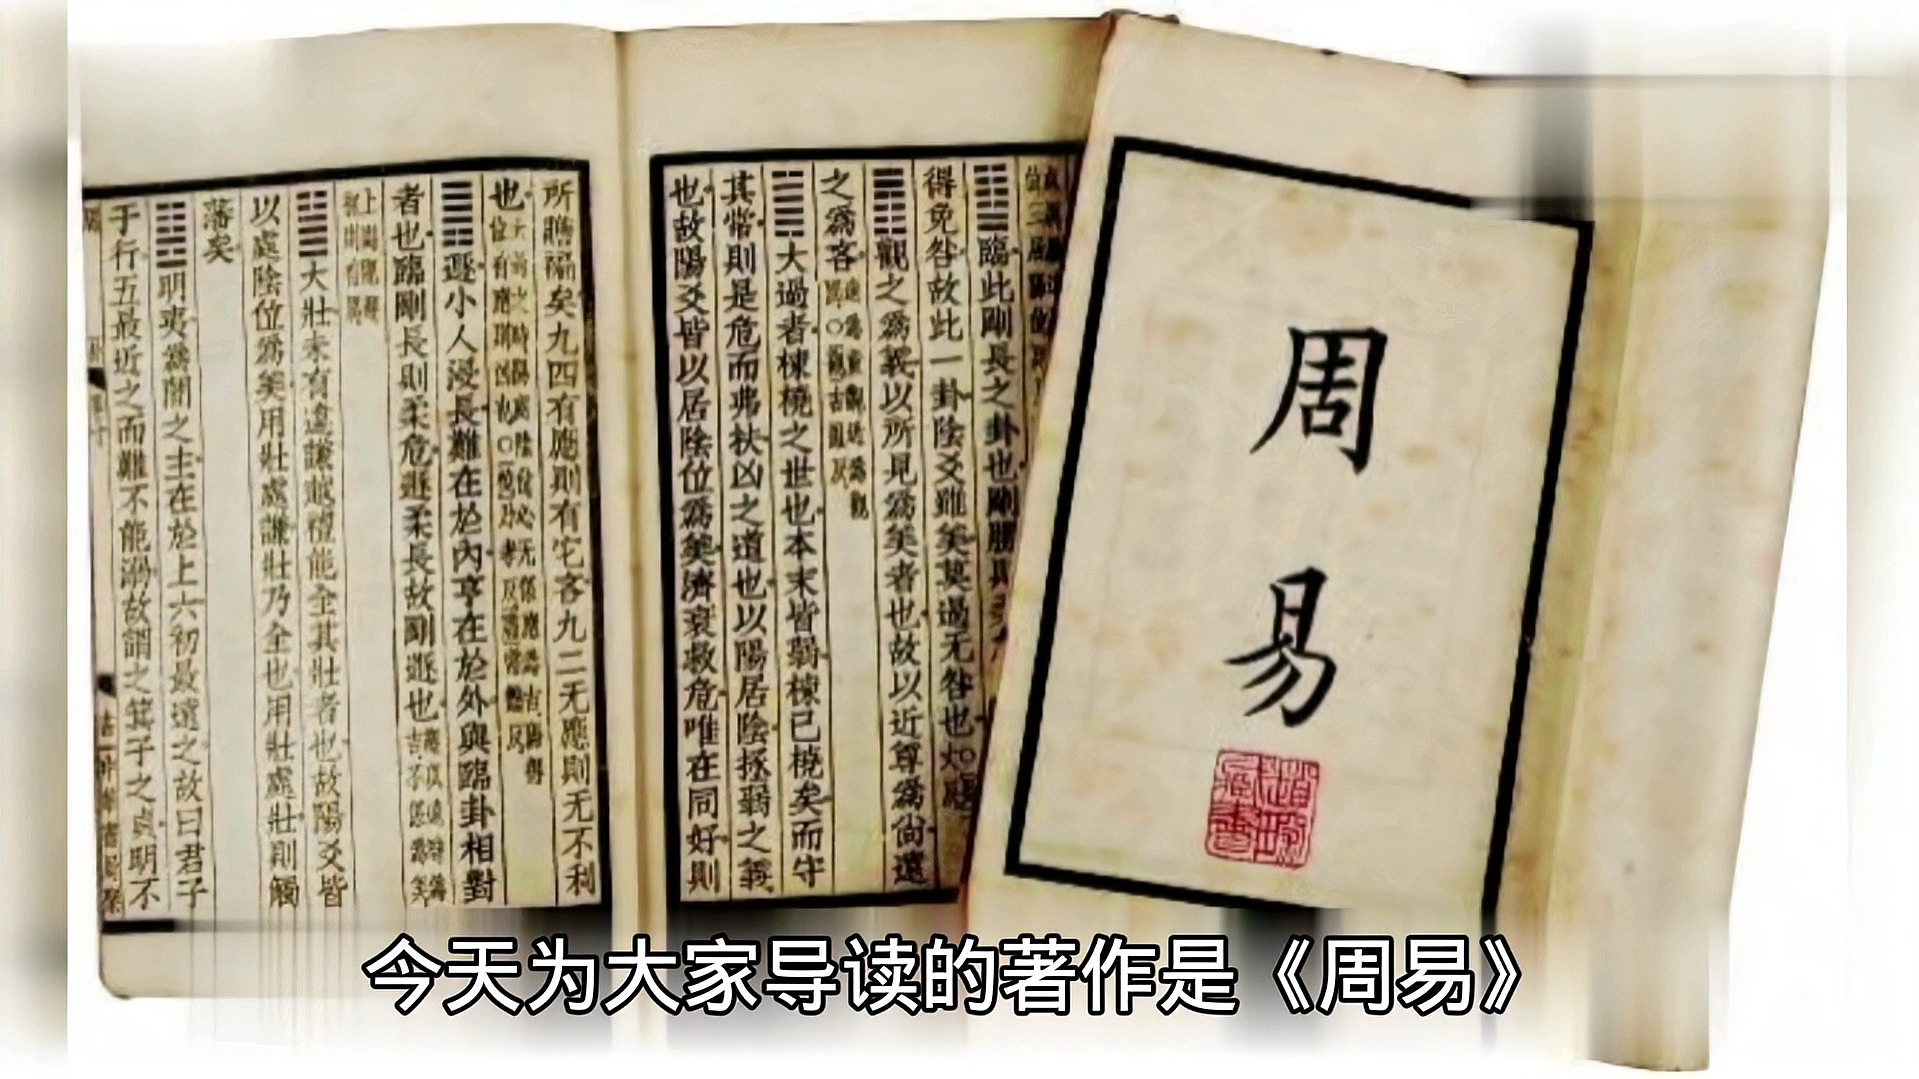 所贍褔矣九四有應則有它吝九二无應則无不利
也
遯小人浸長難在於內亨在於外與臨卦相對
者也臨剛長則柔危遯柔長故剛遯也
大壯未有違謙越禮能全其壯者也故陽爻皆
以處陰位為美用壯處謙壯乃全也用壯處壯則觸
藩矣
明夷為闇之主在於上六初最遠之故曰君子
于行五最近之而難不能溺故謂之箕子之貞明不
臨此剛長之卦也剛勝則
得免咎故此一卦陰爻雖美莫過无咎也
觀之為義以所見為美者也故以近尊為尚遠
之為吝
大過者棟橈之世也本末皆弱棟已橈矣而守
其常則是危而弗扶凶之道也以陽居陰拯弱之義
也故陽爻皆以居陰位為美濟衰救危唯在同好則
周易
今天为大家导读的著作是《周易》